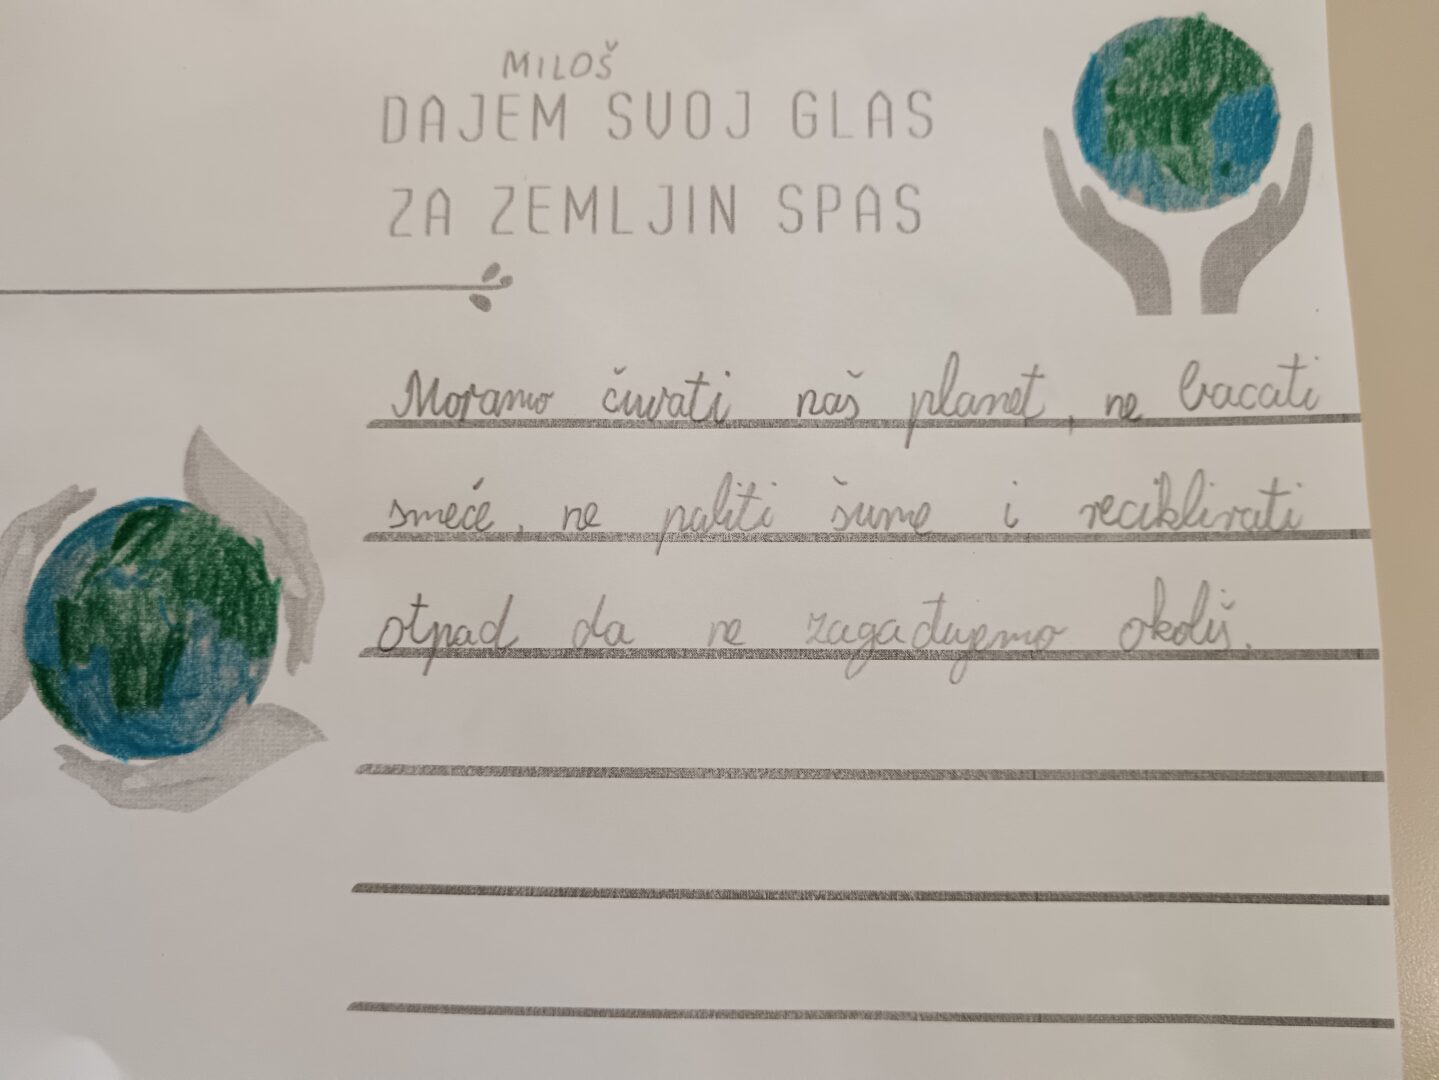 MILOŠ
DAJEM SVOJ GLAS
ZA ZEMLJIN SPAS
Moramo čuvati naš planet, ne bacati
smeće, ne paliti šume i reciklirati
otpad da ne zagađujemo okoliš.